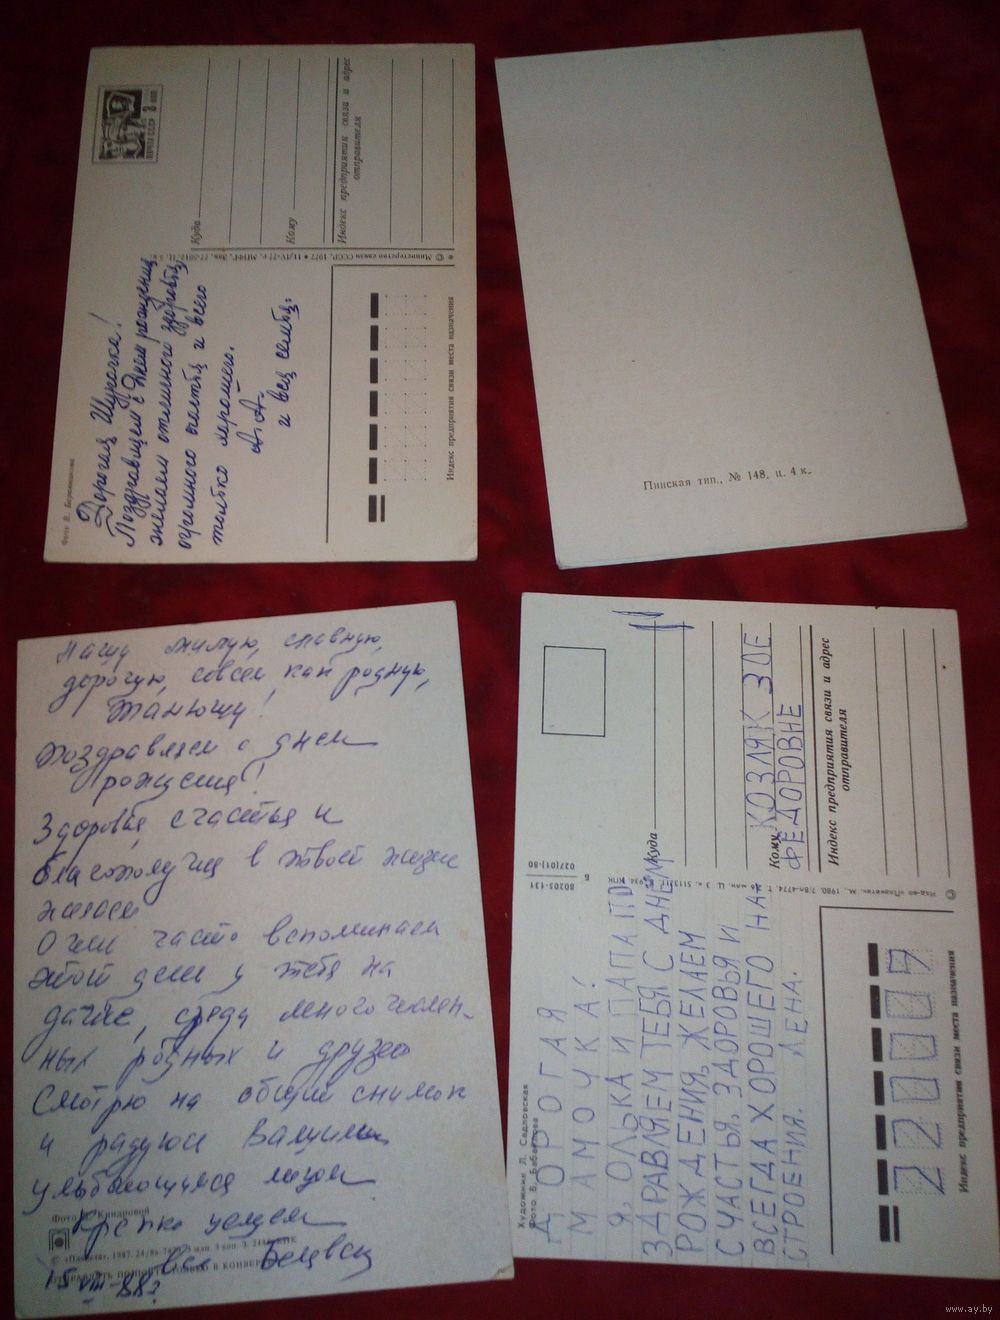 Фото В.
Дорогая Шурочка!
Поздравляем с Днём рождения,
желаем отличного здоровья,
огромного счастья и всего
только хорошего.
А. А.
и вся семья.
ПОЧТА СССР
Куда
Кому
Индекс предприятия связи и адрес
отправителя
© Министерство связи СССР, 1977
Индекс предприятия связи места назначения
Пинская тип., № 148, ц. 4 к.
Нашу милую, славную,
дорогую, совсем как родную,
Танюшу!
поздравляем с днем
рождения!
Здоровья, счастья и
благополучия в твоей жизни
желаем
Очень часто вспоминаем
этот день у тебя на
даче, среди многочислен-
ных родных и друзей
Смотрю на общий снимок
и радуюсь Вашим
улыбающимся лицам
Крепко целуем
Все
Фото Кинаровой
© «Планета», 1987.
15 VIII-88г
Художник Л. Садловская
Фото В.
ДОРОГАЯ
МАМОЧКА!
Я, ОЛЬКА И ПАПА ПО
ЗДРАВЛЯЕМ ТЕБЯ С ДНЕМ
РОЖДЕНИЯ, ЖЕЛАЕМ
СЧАСТЬЯ, ЗДОРОВЬЯ И
ВСЕГДА ХОРОШЕГО НА
СТРОЕНИЯ. ЛЕНА.
80205-131
027(01)-80
Б
Куда
Кому КОЗЛЯК ЗОЕ
ФЕДОРОВНЕ
Индекс предприятия связи и адрес
отправителя
220009
Индекс предприятия связи места назначения
www.ay.by